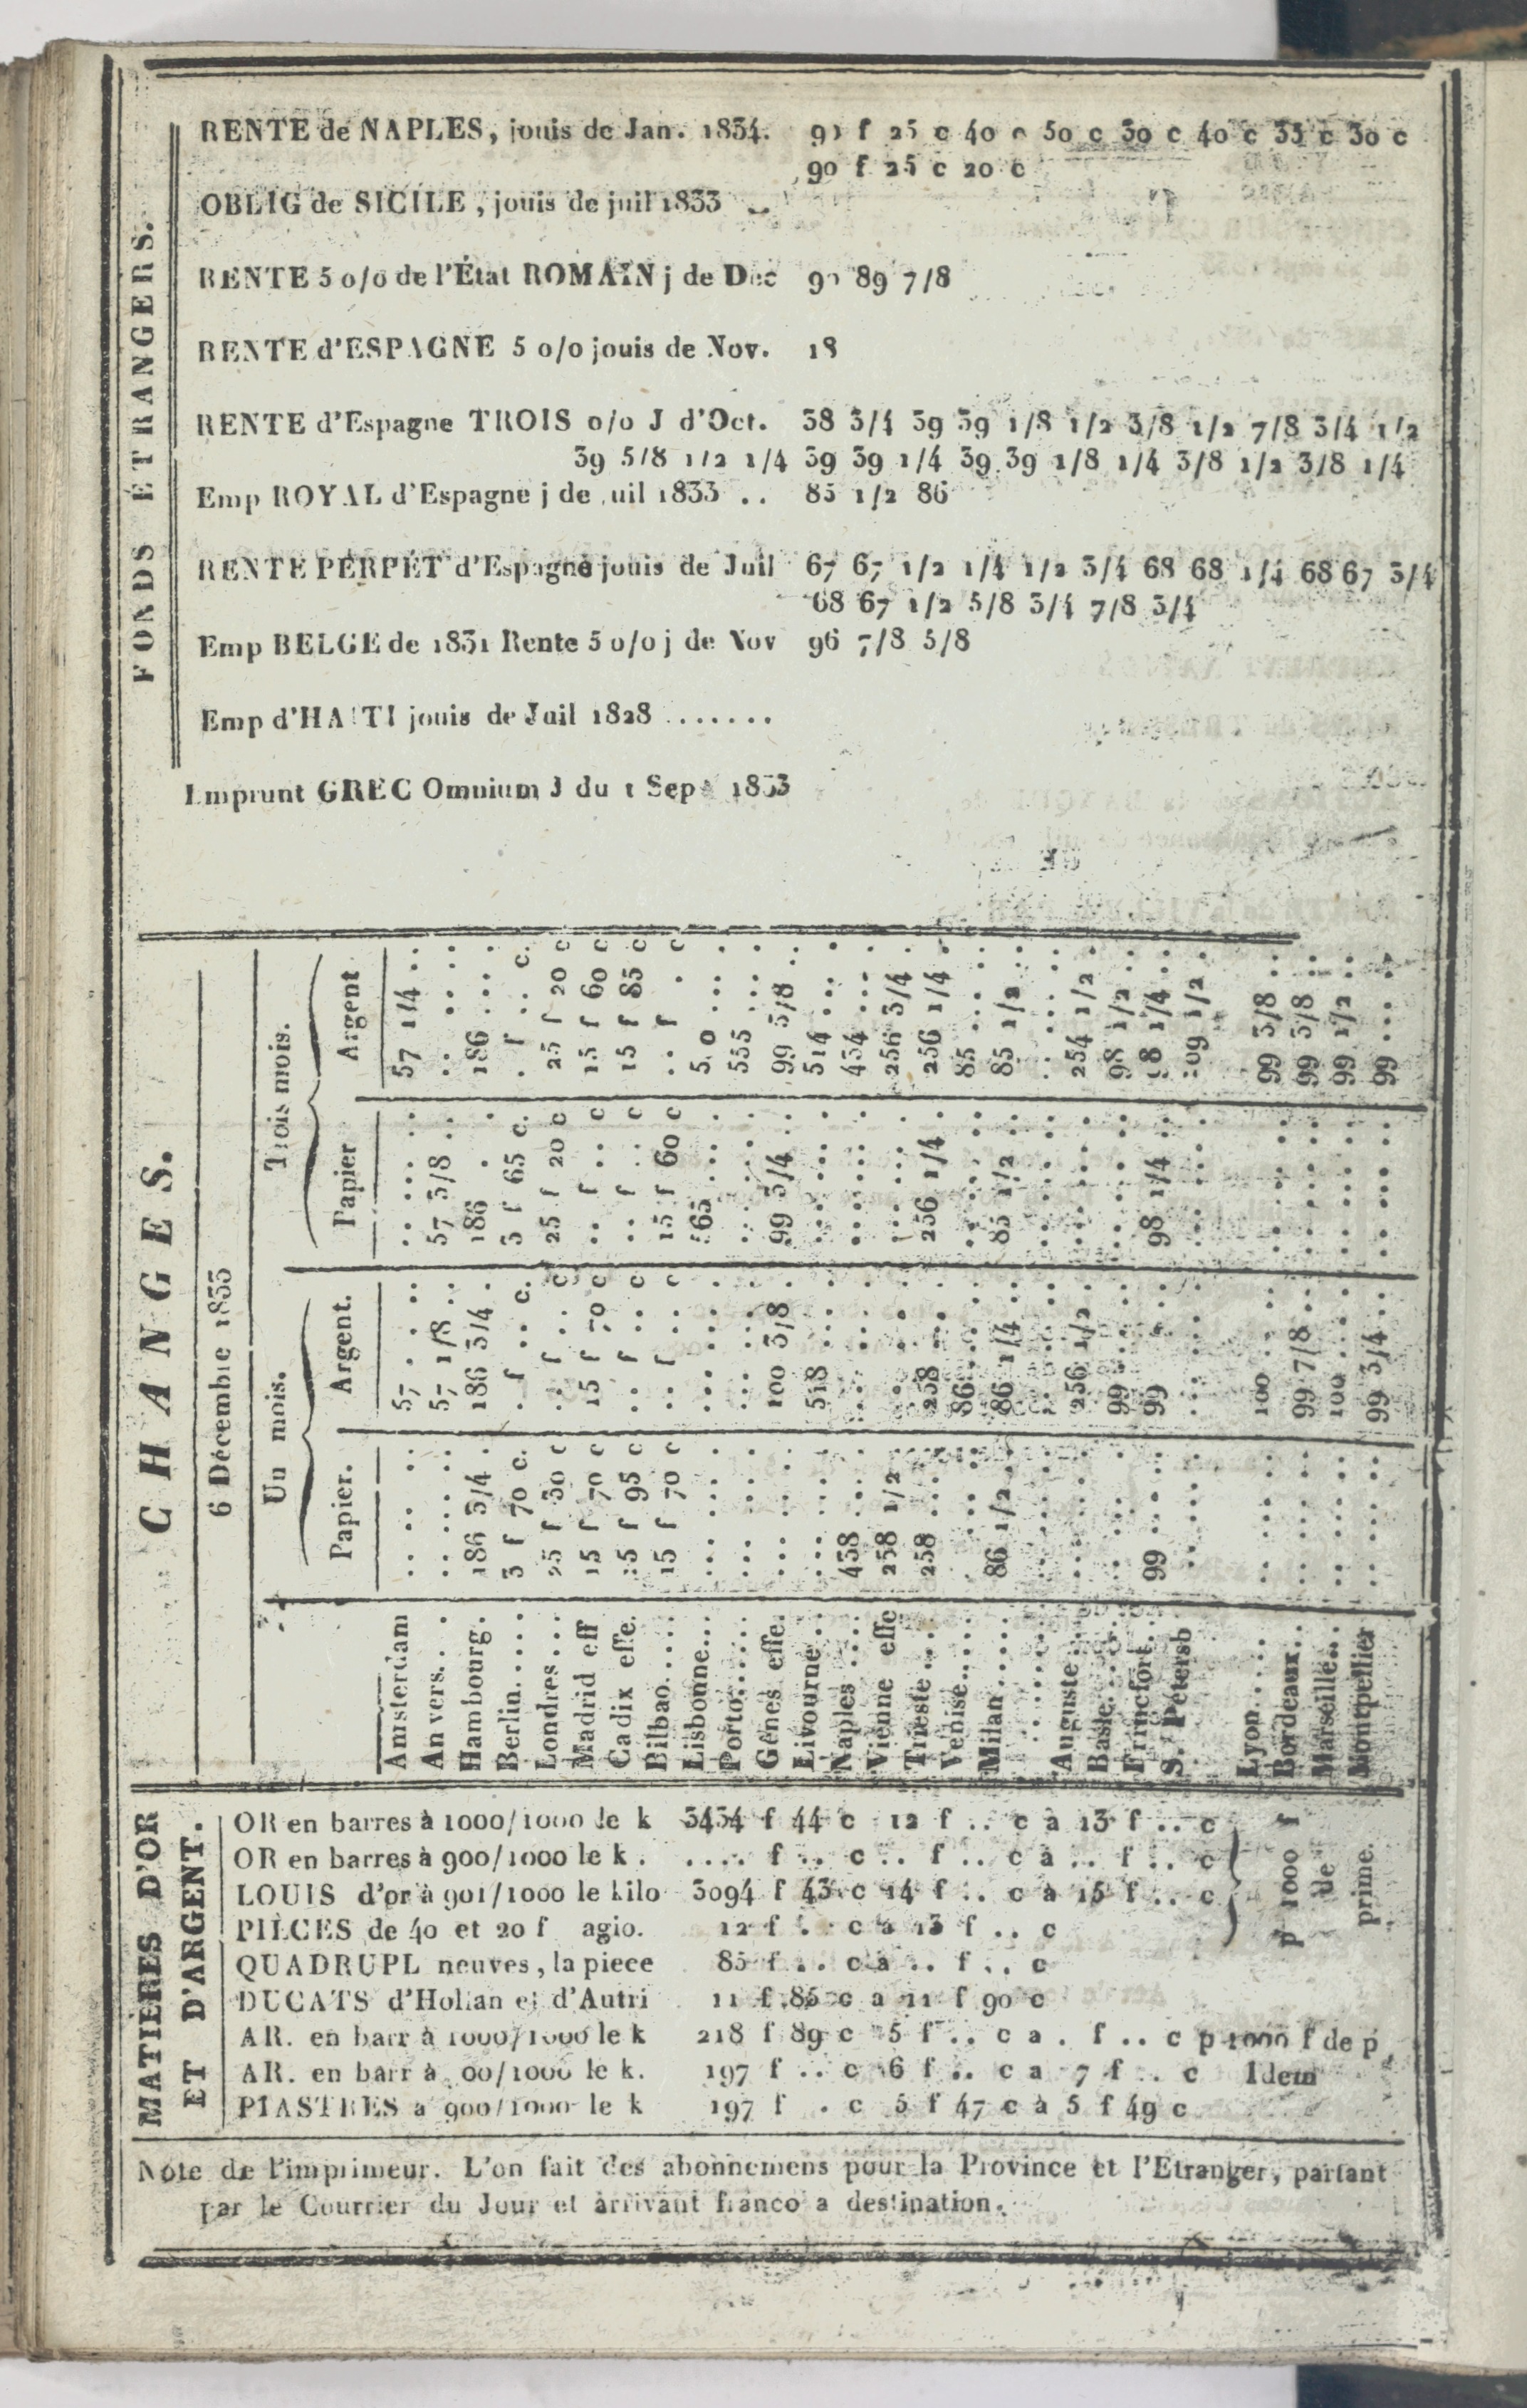 FONDS ÉTRANGERS.
RENTE de NAPLES, jouis de Jan. 1834. 90 f 25 c 40 c 50 c 30 c 40 c 35 c 30 c
90 f 25 c 20 c
OBLIG de SICILE, jouis de juil 1833 ..
RENTE 5 o/o de l'État ROMAIN j de Dec 90 89 7/8
RENTE d'ESPAGNE 5 o/o jouis de Nov. 18
RENTE d'Espagne TROIS o/o J d'Oct. 38 3/4 39 39 1/8 1/2 3/8 1/2 7/8 3/4 1/2
39 5/8 1/2 1/4 39 39 1/4 39 39 1/8 1/4 3/8 1/2 3/8 1/4
Emp ROYAL d'Espagne j de uil 1833 .. 85 1/2 86
RENTE PERPÉT d'Espagne jouis de Juil 67 67 1/2 1/4 1/2 3/4 68 68 1/4 68 67 3/4
68 67 1/2 5/8 3/4 7/8 3/4
Emp BELGE de 1831 Rente 5 o/o j de Nov 96 7/8 5/8
Emp d'HAITI jouis de Juil 1828 .......
Emprunt GREC Omnium J du 1 Sept 1833
CHANGES.
6 Décembre 1833
Un mois. Trois mois.
Papier. Argent. Papier Argent
Amsterdam .. .. .. 57 . . .. .. .. .. 57 1/4 ..
Anvers. . . .. .. .. 57 1/8 .. 57 3/8 .. .. .. ..
Hambourg. 186 3/4 . 186 3/4 . 186 . . 186 ...
Berlin..... 3 f 70 c. . f .. c. 3 f 65 c. . f .. c.
Londres ... 25 f 30 c .. f .. c 25 f 20 c 25 f 20 c
Madrid eff 15 f 70 c 15 f 70 c .. f .. c 15 f 60 c
Cadix effe. 15 f 95 c .. f .. c .. f .. c 15 f 85 c
Bilbao..... 15 f 70 c .. f .. c 15 f 60 c .. f . c
Lisbonne... ... .. ... .. 565 .. 5 0 ...
Porto...... ... .. ... .. ... .. 555 ...
Gênes effe. ... .. 100 3/8 . 99 3/4 . 99 5/8 ..
Livourne .. ... .. 518 .. ... .. 514 ...
Naples .... 438 .. ... .. ... .. 434 ...
Vienne effe 258 1/2 ... .. ... .. 256 3/4 .
Trieste ... 258 .. 258 .. 256 1/4 256 1/4 .
Venise..... ... .. 86 .. ... .. 85 ...
Milan ..... 86 1/2 . 86 1/4 . 85 1/2 . 85 1/2 ..
Auguste ... ... .. 256 1/2 ... .. 254 1/2 .
Basle...... ... .. 99 .. ... .. 98 1/2 ..
Francfort.. 99 .. 99 .. 98 1/4 . 98 1/4 .
S. Pétersb ... .. ... .. ... .. 109 1/2 .
Lyon..... ... .. 100 .. ... .. 99 3/8 ..
Bordeaux... ... .. 99 7/8 .. ... .. 99 3/8 ..
Marseille... ... .. 100 .. ... .. 99 1/2 ..
Montpellier ... .. 99 3/4 .. ... .. 99 ...
MATIÈRES D'OR
ET D'ARGENT.
OR en barres à 1000/1000 le k 3434 f 44 c 12 f .. c a 13 f .. c
OR en barres à 900/1000 le k . .... f .. c .. f .. c à .. f .. c
LOUIS d'or à 901/1000 le kilo 3094 f 43 c 14 f .. c à 15 f .. c
PIÈCES de 40 et 20 f agio. 12 f . . c a 13 f .. c
p 1000 f
de
prime.
QUADRUPL neuves, la piece 85 f .. c à .. f .. c
DUCATS d'Hollan et d'Autri 11 f 85 c a 11 f 90 c
AR. en barr à 1000/1000 le k 218 f 89 c 5 f .. c a . f .. c p 1000 f de p
AR. en barr à 00/1000 le k. 197 f .. c 6 f .. c a 7 f .. c Idem
PIASTRES a 900/1000 le k 197 f . c 5 f 47 c à 5 f 49 c
Note de l'imprimeur. L'on fait des abonnemens pour la Province et l'Etranger, partant
par le Courrier du Jour et arrivant franco a destination.